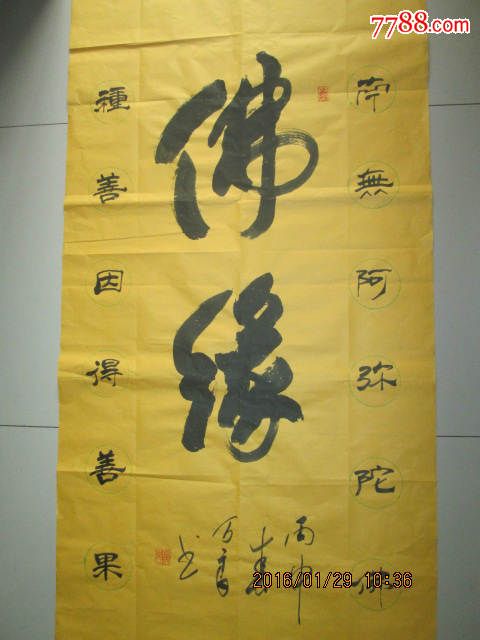 7788.com
南無阿弥陀佛
佛缘
種善因得善果
丙申
春
书
2016/01/29 10:36